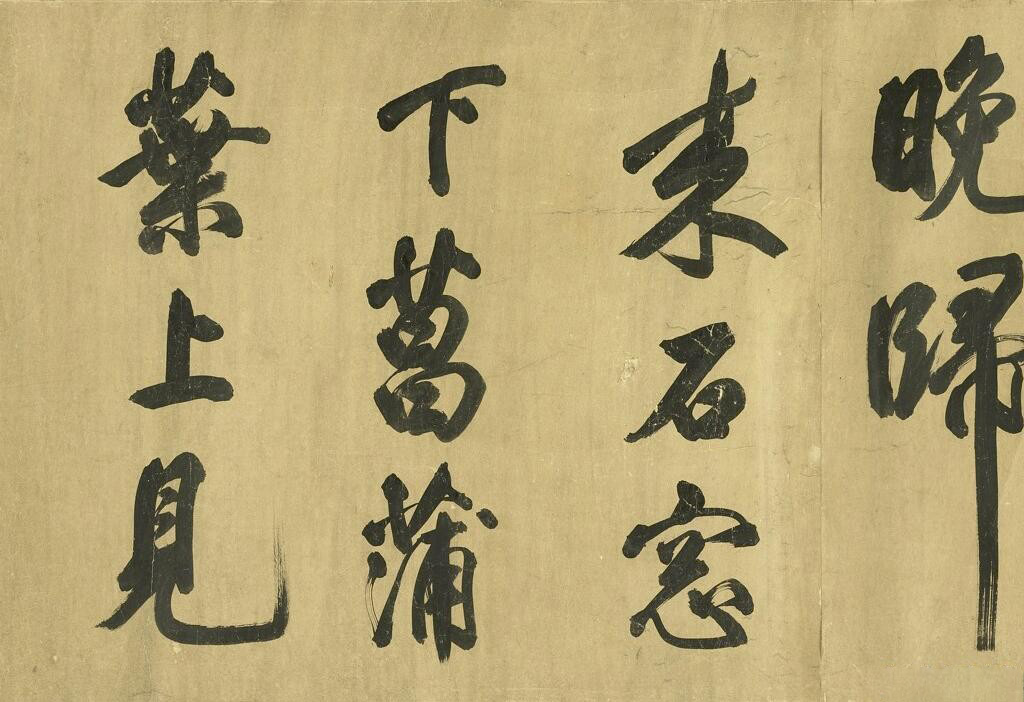 晚歸
来石窓
下菖蒲
葉上見